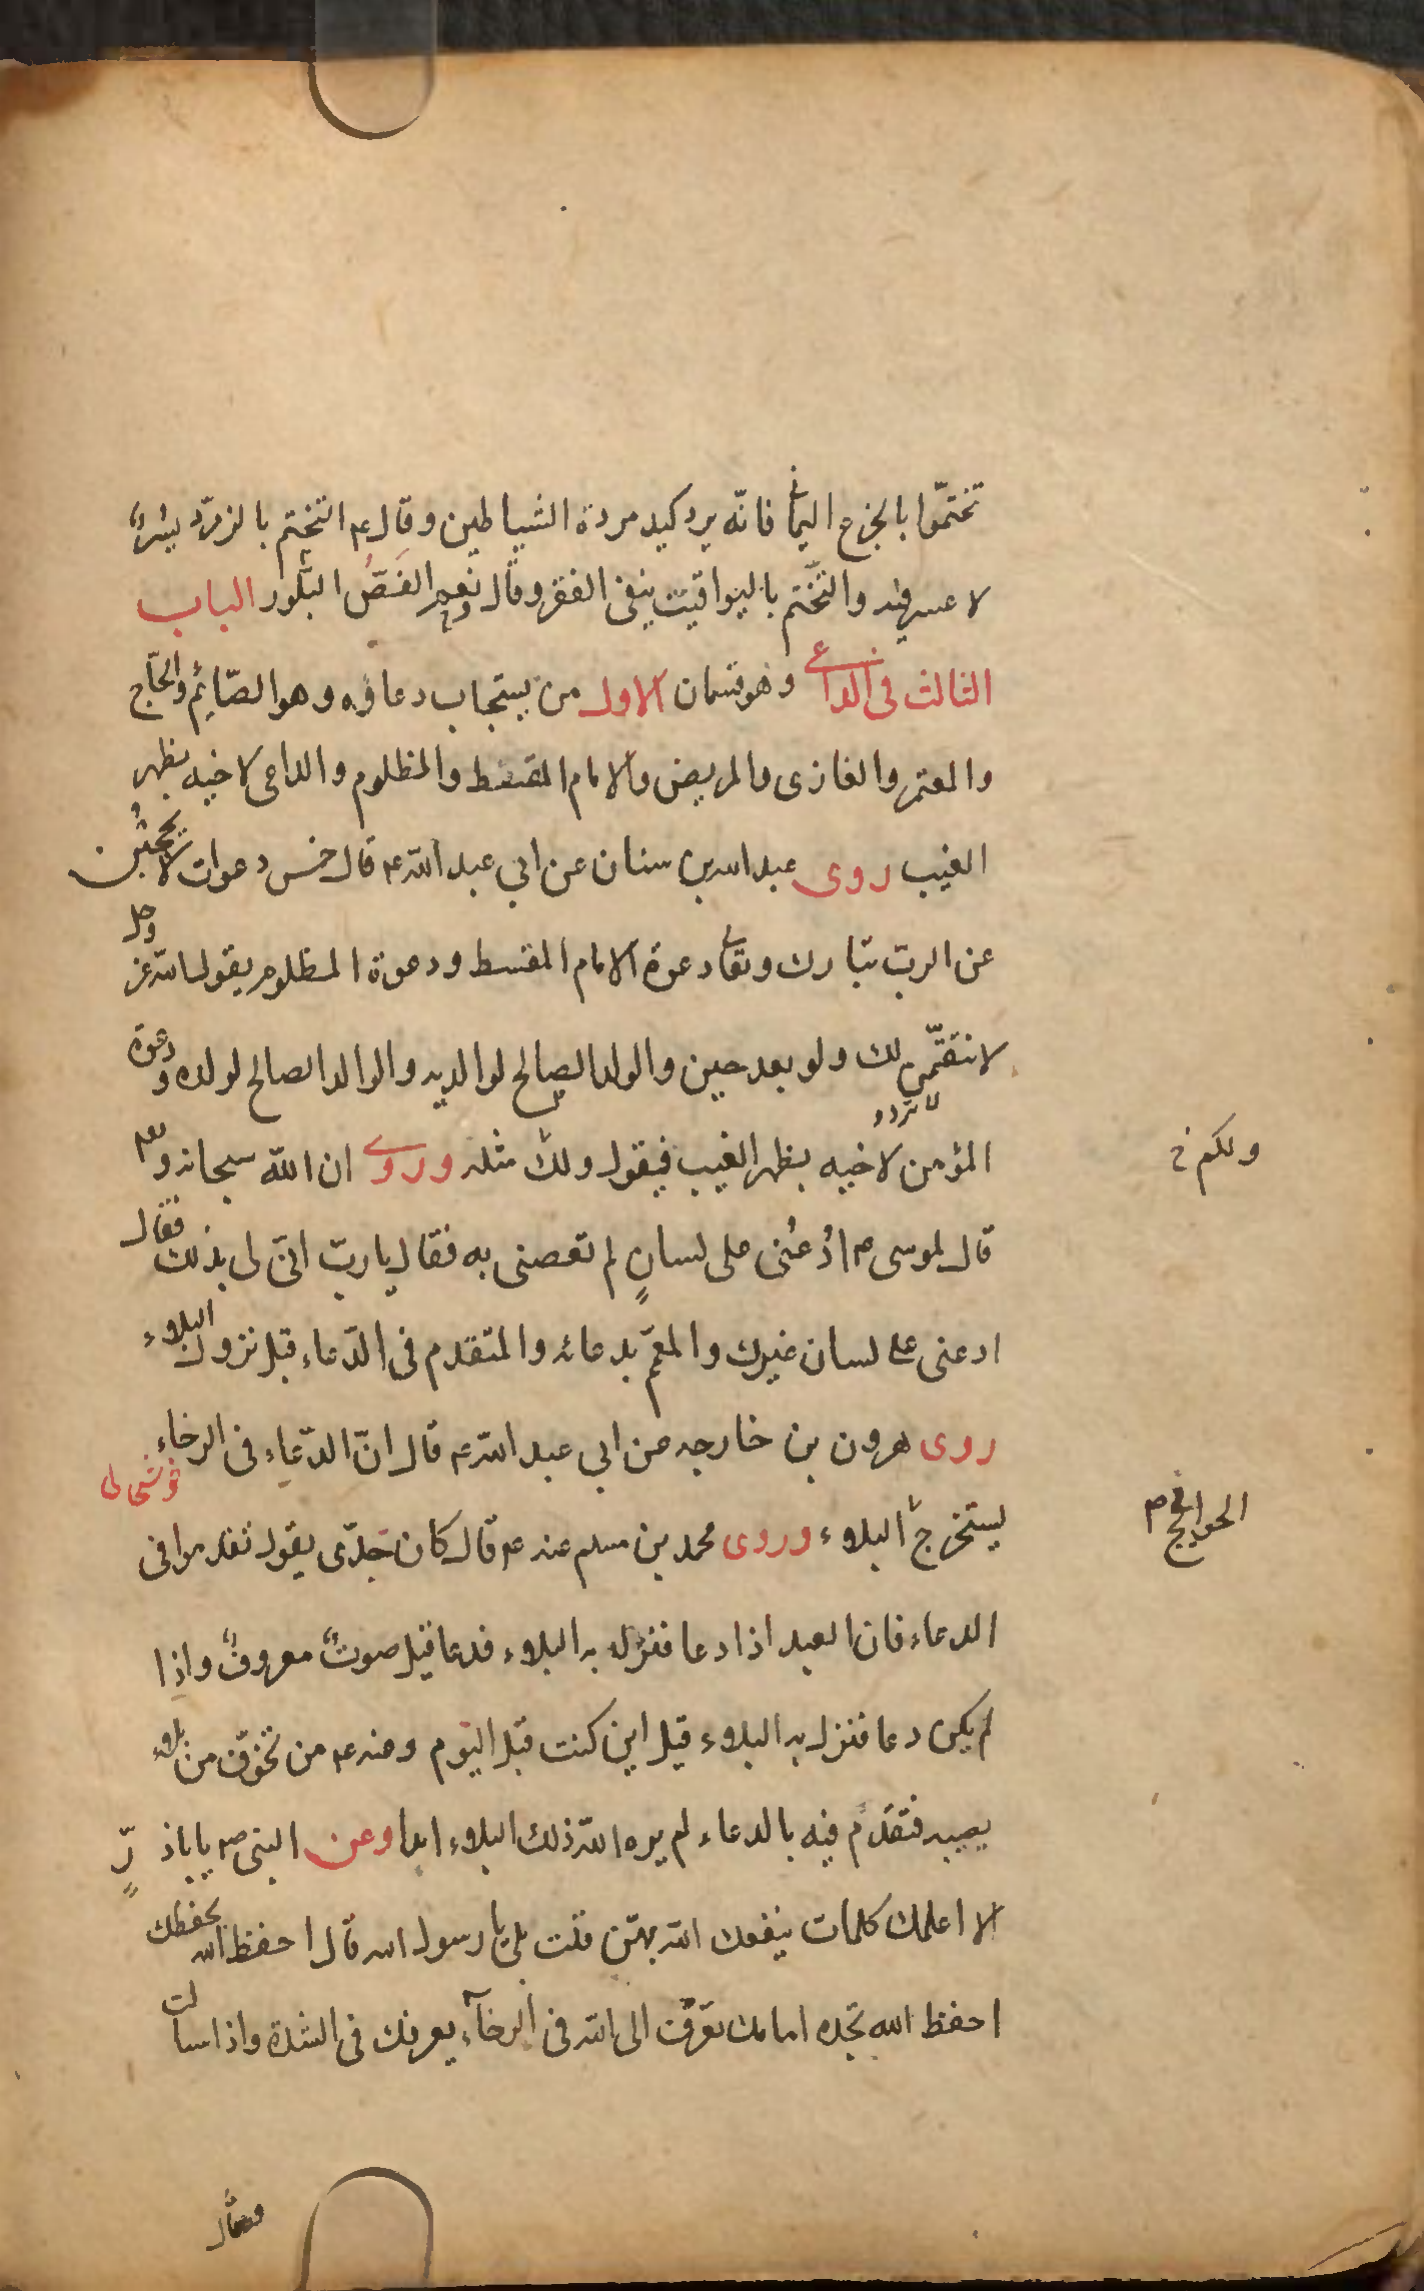 تختمّوا بالجزع اليمانى فانّه يرد كيد مردة الشياطين وقال ع التختم بالزمرّد يسرٌ
لا عسر فيه والتّختم باليواقيت ينفى الفقر وقال نعم الفَصُّ البلّور الباب
الثالث فى الداعى وهو قسمان الاول من يستجاب دعاؤه وهو الصّايم والحّاج
والمعتمر والغازى والمريض والامام المقسط والمظلوم والداعى لاخيه بظهر
الغيب روى عبد الله بن سنان عن ابي عبد الله ع قال خمس دعوات لا تحجبن
عن الربّ تبارك وتعالى دعوة الامام المقسط ودعوة المظلوم يقول الله عز وجل
لانتقمّن لك ولو بعد حين والولد الصالح لوالديه والوالد الصالح لولده ودعوة
المؤمن لاخيه بظهر الغيب فيقول ولك مثله وروى ان الله سبحانه وتعالى
ولكم خ
قال لموسى ع ادْعُنى على لسانٍ لم تعصنى به فقال يا ربّ انّى لى بذلك فقال
ادعنى على لسان غيرك والمعمّ بدعائه والمتقدم فى الدّعاء قبل نزول البلاء
روى هرون بن خارجه عن ابي عبد الله ع قال انّ الدّعاء فى الرخاء
خوشحالى
ليستخرج البلاء وروى محمد بن مسلم عنه ع قال كان جَدّى يقول تقدموا فى
الحوايج فى م
الدعاء فان العبد اذا دعا فنزل به البلاء فدعا قيل صوتٌ معروفٌ واذا
لم يكن دعا فنزل به البلاء قيل اين كنت قبل اليوم وعنه ع من تخوّف من بلاء
يصيبه فتقدّم فيه بالدعاء لم يره الله ذلك البلاء ابدا وعن النبى ص يا باذرٍّ
الا اعلمك كلمات ينفعك الله بهنّ قلت بلى يا رسول الله قال احفظ الله يحفظك
احفظ الله تجده امامك تعرّف الى الله فى الرخآء يعرفك فى الشدة واذا سالت